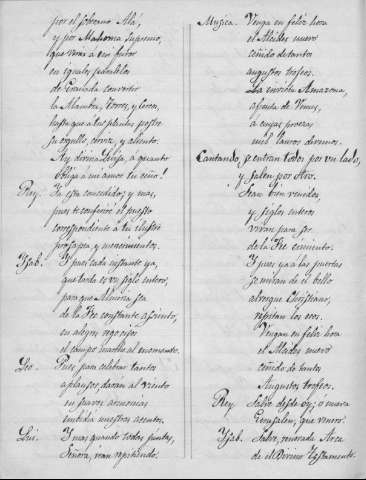 por el soberano Alá,
y por Mahoma Supremo,
que verás á tu
en iguales
de Granada convertir
la Alambra, torres, y cerca,
hasta que á tus plantas postre
su orgullo, cerviz, y aliento.
Ay divina Luisa, á quanto
obliga á un amor tu ceño!
Rey. Ya esta concedido; y mas,
pues te confiere el puesto
correspondiente á tu ilustre
prosapia, y merecimientos.
Ysab. Y pues cada instante ya,
que tarda es un siglo entero,
para que Almeria sea
de la Fée constante asiento,
en alegres regocijos
el campo marche al momento.
Leo. Pues para celebrar tantos
aplausos, daran al viento
en suaves armonias
embidia nuestros acentos.
Lui. Y mas quando todos juntos,
Señora, iran repitiendo.
Musica. Venga en feliz hora
el Alcides nuevo
ceñido de tantos
augustos trofeos.
La invicta Amazona,
afrenta de Venus,
á cuyas proezas
mil lauros divinos.
Cantando, se entran todos por un lado,
y salen por otro.
Sean bien venidos,
y siglos enteros
vivan para ser
de la Fée cimiento.
Y pues ya á las puertas
se miran de el bello
albergue Christiano,
repitan los ecos.
Vengan en feliz hora
el Alcides nuevo
ceñido de tantos
Augustos trofeos.
Rey. Salve desde oy, ó nueva
Jerusalen, que venero.
Ysab. Salve, venerada Arca
de el Divino Testamento.